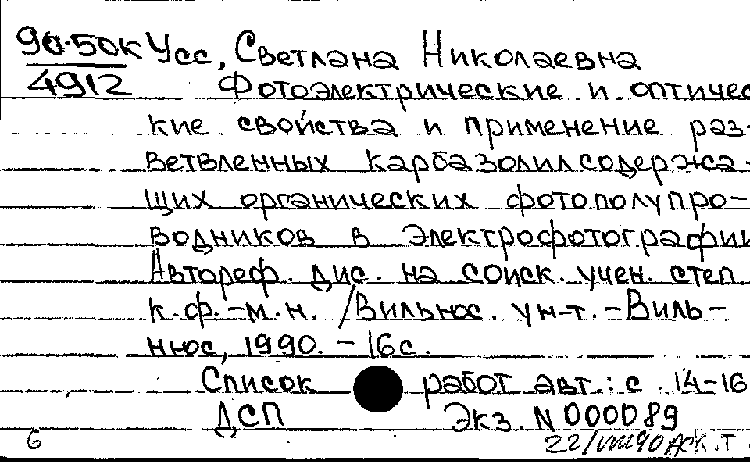 90-50к Усс, Светлана Николаевна
4912 Фотоэлектрические и оптичес
кие свойства и применение раз-
ветвленных карбазолилсодержа-
щих органических фотополупро-
водников в электрофотографии
Автореф. дис. на соиск. учен. степ.
к.ф.-м.н. /Вильнюс. ун-т. - Виль-
нюс, 1990. - 16с.
Список работ авт.: с. 14-16
ДСП Экз. N 000089
6 22/VIII90